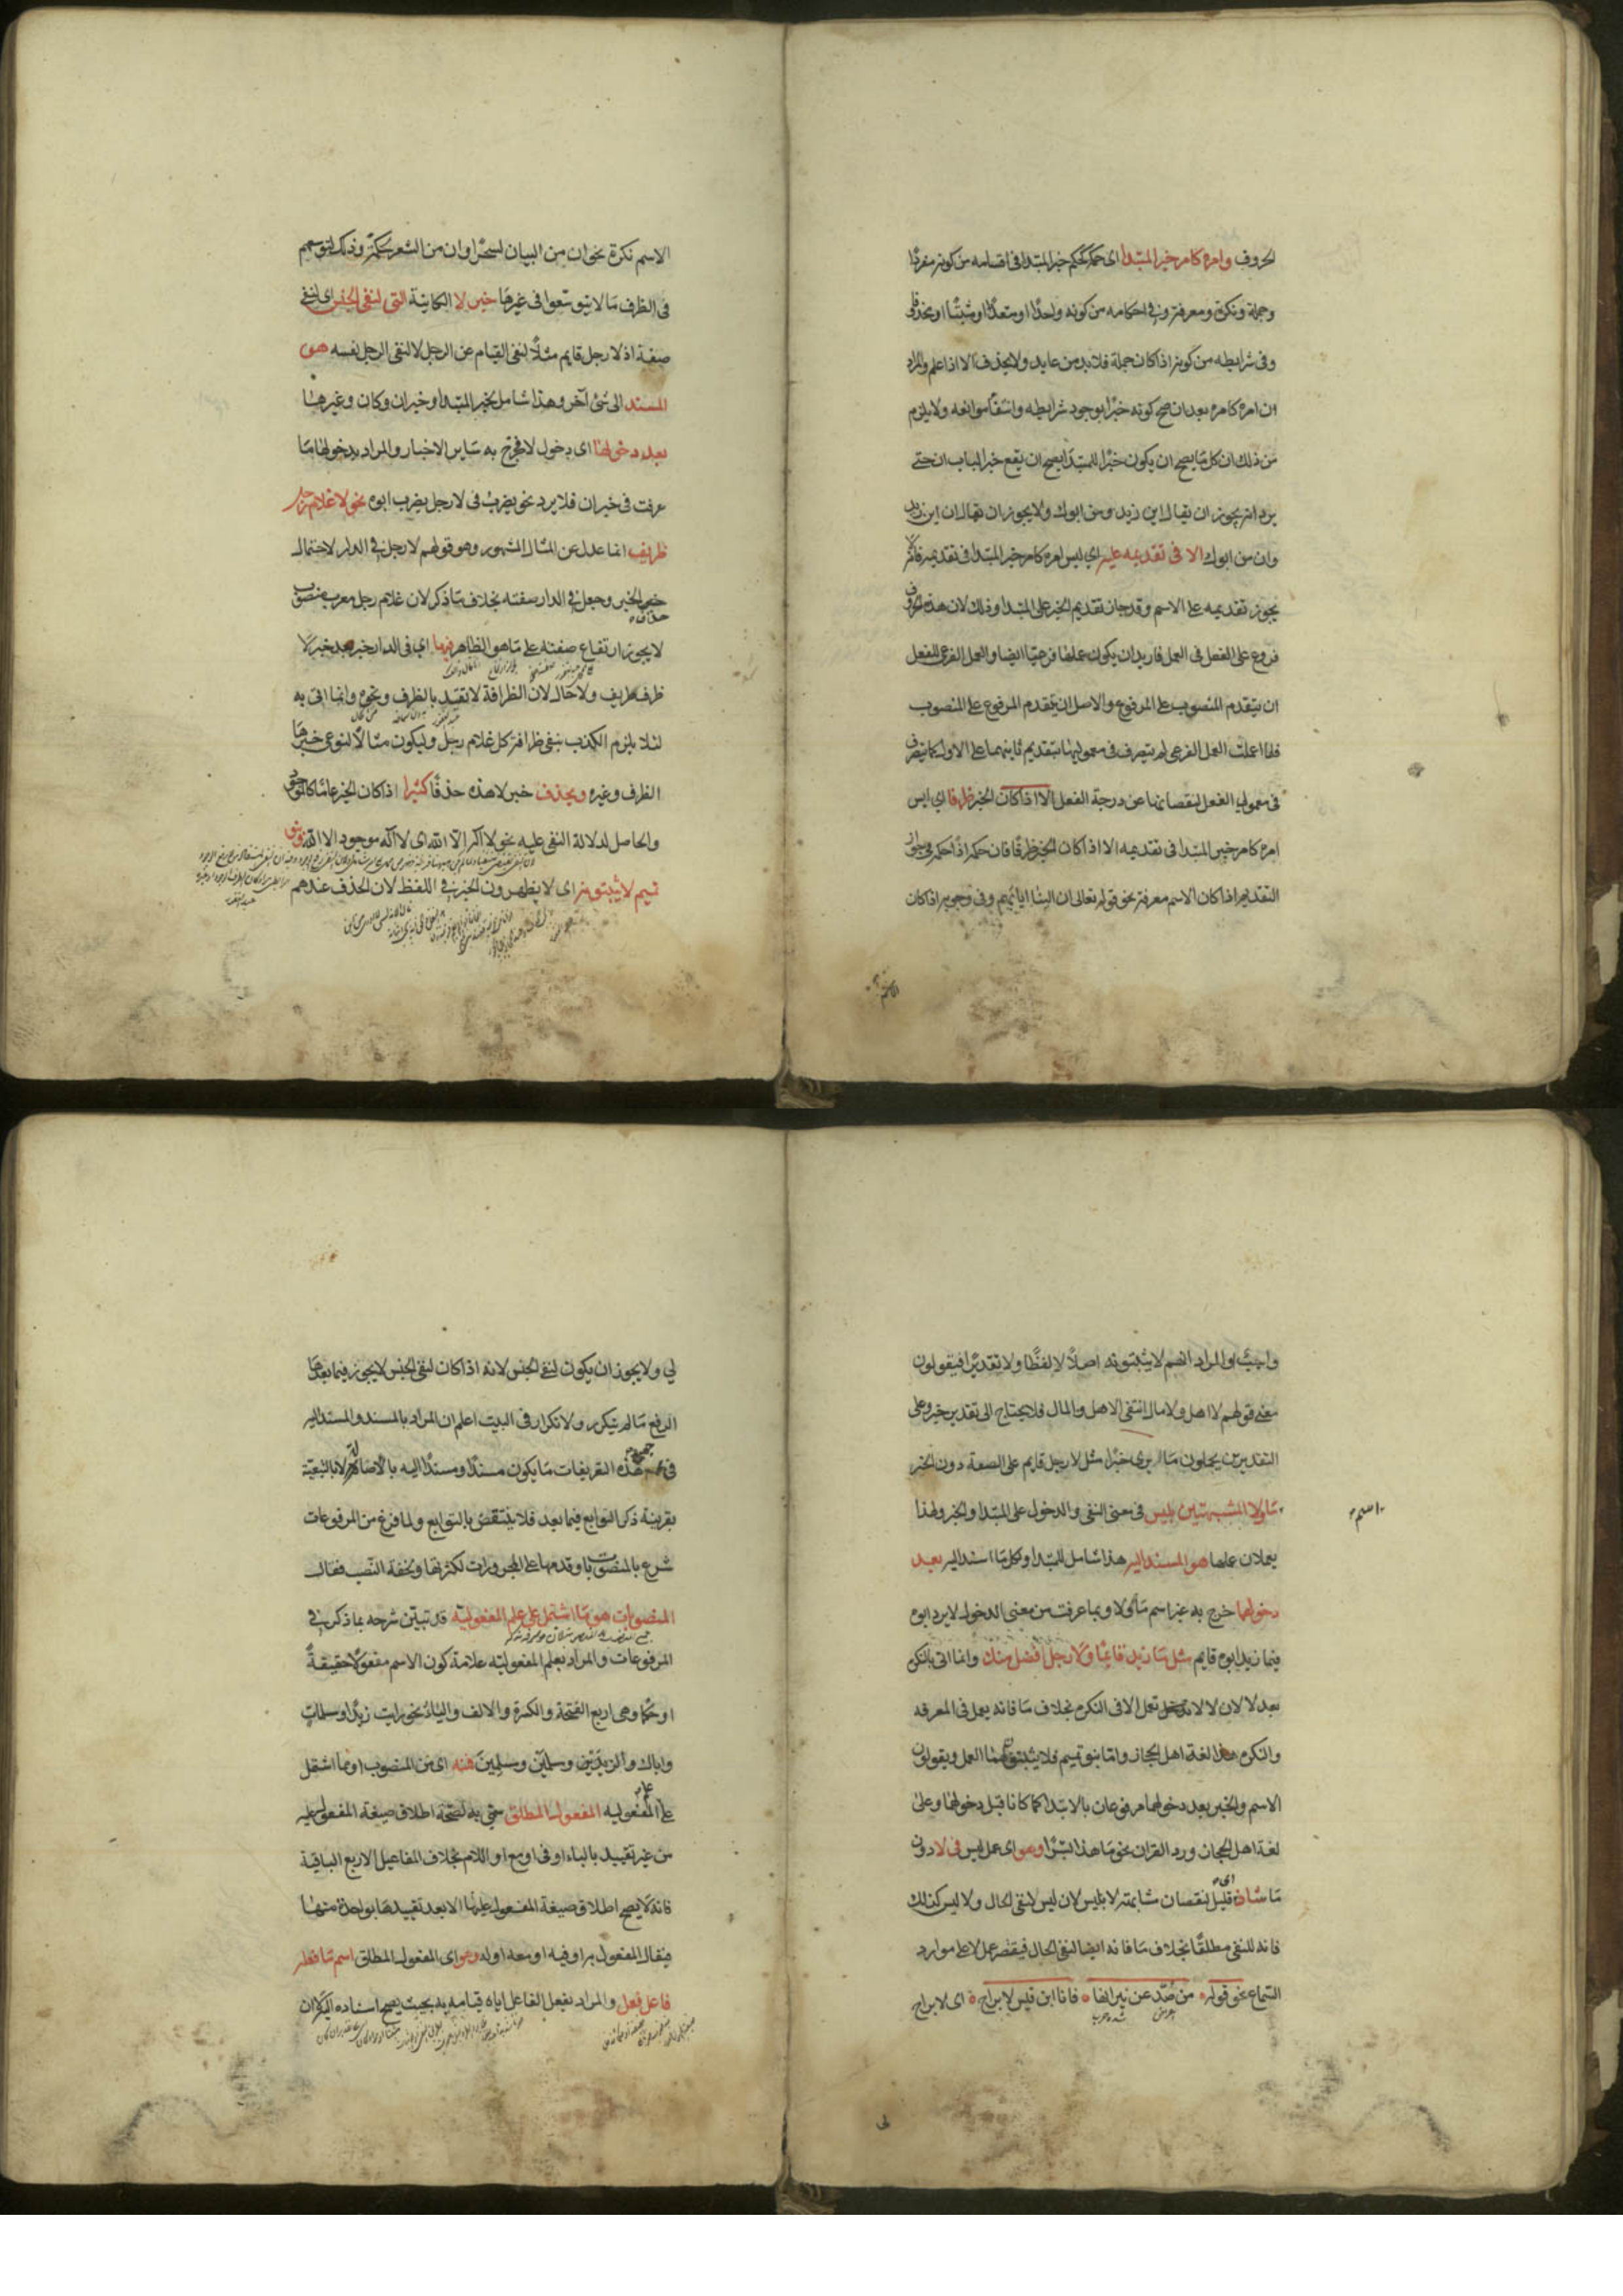 الحروف وامره كامر خبر المبتدا اى حكمه كحكم خبر المبتدا فى اقسامه من كونه مفردا
وجملة ونكرة ومعرفة وفى احكامه من كونه واحدا او متعددا او مثبتا او محذوفا
وفى شرايطه من كونه اذا كان جملة فلا بد من عايد ولا يحذف الا اذا علم والمراد
ان امره كامره بعد ان صح كونه خبرا بوجود شرايطه وانتفا موانعه ولا يلزم
من ذلك ان كل ما يصح ان يكون خبرا للمبتدا يصح ان يقع خبرا لباب ان حتى
يرد انه يجوز ان يقال اين زيد ومن ابوك ولا يجوز ان يقال ان اين زيد
وان من ابوك الا فى تقديمه عليه اى ليس امره كامر خبر المبتدا فى تقديمه فانه لا
يجوز تقديمه على الاسم وقد جاز تقديم الخبر على المبتدا وذلك لان هذه الحروف
فروع على الفعل فى العمل فاريد ان يكون عملها فرعيا ايضا والعمل الفرعى للفعل
ان يتقدم المنصوب على المرفوع والاصل ان يتقدم المرفوع على المنصوب
فلما اعملت العمل الفرعى لم يتصرف فى معموليها بتقديم ثانيهما على الاول كما يتصرف
فى معمولى الفعل لنقصانها عن درجة الفعل الا اذا كان الخبر ظرفا اى ليس
امره كامر خبر المبتدا فى تقديمه الا اذا كان الخبر ظرفا فان حكمه اذا حكمه فى جواز
التقديم اذا كان الاسم معرفة نحو قوله تعالى ان الينا ايابهم وفى وجوبه اذا كان
الاسم
الاسم نكرة نحو ان من البيان لسحرا وان من الشعر لحكمة وذلك لتوسعهم
فى الظرف ما لا يتوسعوا فى غيرها خبر لا الكاينة التى لنفى الجنس اى لنفى
صفة اذ لا رجل قايم مثلا لنفى القيام عن الرجل لا لنفى الرجل نفسه هو
المسند الى شئ آخر وهذا شامل لخبر المبتدا وخبر ان وكان وغيرها
بعد دخولها اى دخول لا فخرج به ساير الاخبار والمراد بدخولها ما
عرفت فى خبر ان فلا يرد نحو يضرب فى لا رجل يضرب ابوه نحو لا غلام رجل
ظريف انما عدل عن المثال المشهور وهو قولهم لا رجل فى الدار لاحتمال
حذف الخبر وجعل فى الدار صفته بخلاف ما ذكر لان غلام رجل معرب منصوب
لا يجوز ارتفاع صفته على ما هو الظاهر فيها اى فى الدار خبر بعد خبر لا
ظرف ظريف ولا حال لان الظرافة لا تتقيد بالظرف ونحوه وانما اتى به
لئلا يلزم الكذب بنفى ظرافة كل غلام رجل وليكون مثالا لنوعى خبرها
الظرف وغيره ويحذف خبر لا هذه حذفا كثيرا اذا كان الخبر عاما كالموجود
والحاصل لدلالة النفى عليه نحو لا اله الا الله اى لا اله موجود الا الله وبنو
تميم لا يثبتونه اى لا يظهرون الخبر فى اللفظ لان الحذف عندهم
واجب او المراد انهم لا يثبتونه اصلا لا لفظا ولا تقديرا فيقولون
معنى قولهم لا اهل ولا مال انتفى الاهل والمال فلا يحتاج الى تقدير خبر وعلى
التقديرين يحملون ما يرى خبرا مثل لا رجل قايم على الصفة دون الخبر
اسم
ما ولا المشبهتين بليس فى معنى النفى والدخول على المبتدا والخبر ولهذا
يعملان عملها هو المسند اليه هذا شامل للمبتدا ولكل ما اسند اليه بعد
دخولهما خرج به غير اسم ما ولا وبما عرفت من معنى الدخول لا يرد ابوه
فيما زيد ابوه قايم مثل ما زيد قائما ولا رجل افضل منك وانما اتى بالنكرة
بعد لا لان لا لا تعمل الا فى النكرة بخلاف ما فانه يعمل فى المعرفة
والنكرة هذا لغة اهل الحجاز واما بنو تميم فلا يثبتون لهما العمل ويقولون
الاسم والخبر بعد دخولهما مرفوعان بالابتدا كما كانا قبل دخولهما وعلى
لغة اهل الحجاز ورد القران نحو ما هذا بشرا وهو اى عمل ليس فى لا دون
ما شاذ اى قليل لنقصان مشابهته لا بليس لان ليس لنفى الحال ولا ليس كذلك
فانه للنفى مطلقا بخلاف ما فانه ايضا لنفى الحال فيقتصر عمل لا على موارد
السماع نحو قوله من صد عن نيرانها فانا ابن قيس لا براح اى لا براح
لى
لي ولا يجوز ان يكون لنفى الجنس لانه اذا كان لنفى الجنس لا يجوز فيما بعدها
الرفع ما لم يتكرر ولا تكرار فى البيت اعلم ان المراد بالمسند والمسند اليه
فى هذه التعريفات ما يكون مسندا ومسندا اليه بالاصالة لا بالتبعية
بقرينة ذكر التوابع فيما بعد فلا ينتقض بالتوابع ولما فرغ من المرفوعات
شرع بالمنصوبات وقدمها على المجرورات لكثرتها ولخفة النصب فقال
المنصوبات هو ما اشتمل على علم المفعولية قد تبين شرحه بما ذكر فى
المرفوعات والمراد بعلم المفعولية علامة كون الاسم مفعولا حقيقة
او حكما وهى اربع الفتحة والكسرة والالف والياء نحو رايت زيدا ومسلمات
واباك والزيدين ومسلمين ومسلمين فمنه اى من المنصوب او مما اشتمل
على علم المفعولية المفعول المطلق سمى به لصحة اطلاق صيغة المفعول عليه
من غير تقييد بالباء او فى او مع او اللام بخلاف المفاعيل الاربع الباقية
فانه لا يصح اطلاق صيغة المفعول عليها الا بعد تقييدها بواحدة منها
فيقال المفعول به او فيه او معه او له وهو اى المفعول المطلق اسم ما فعله
فاعل فعل والمراد بفعل الفاعل اياه قيامه به بحيث يصح اسناده اليه لا ان